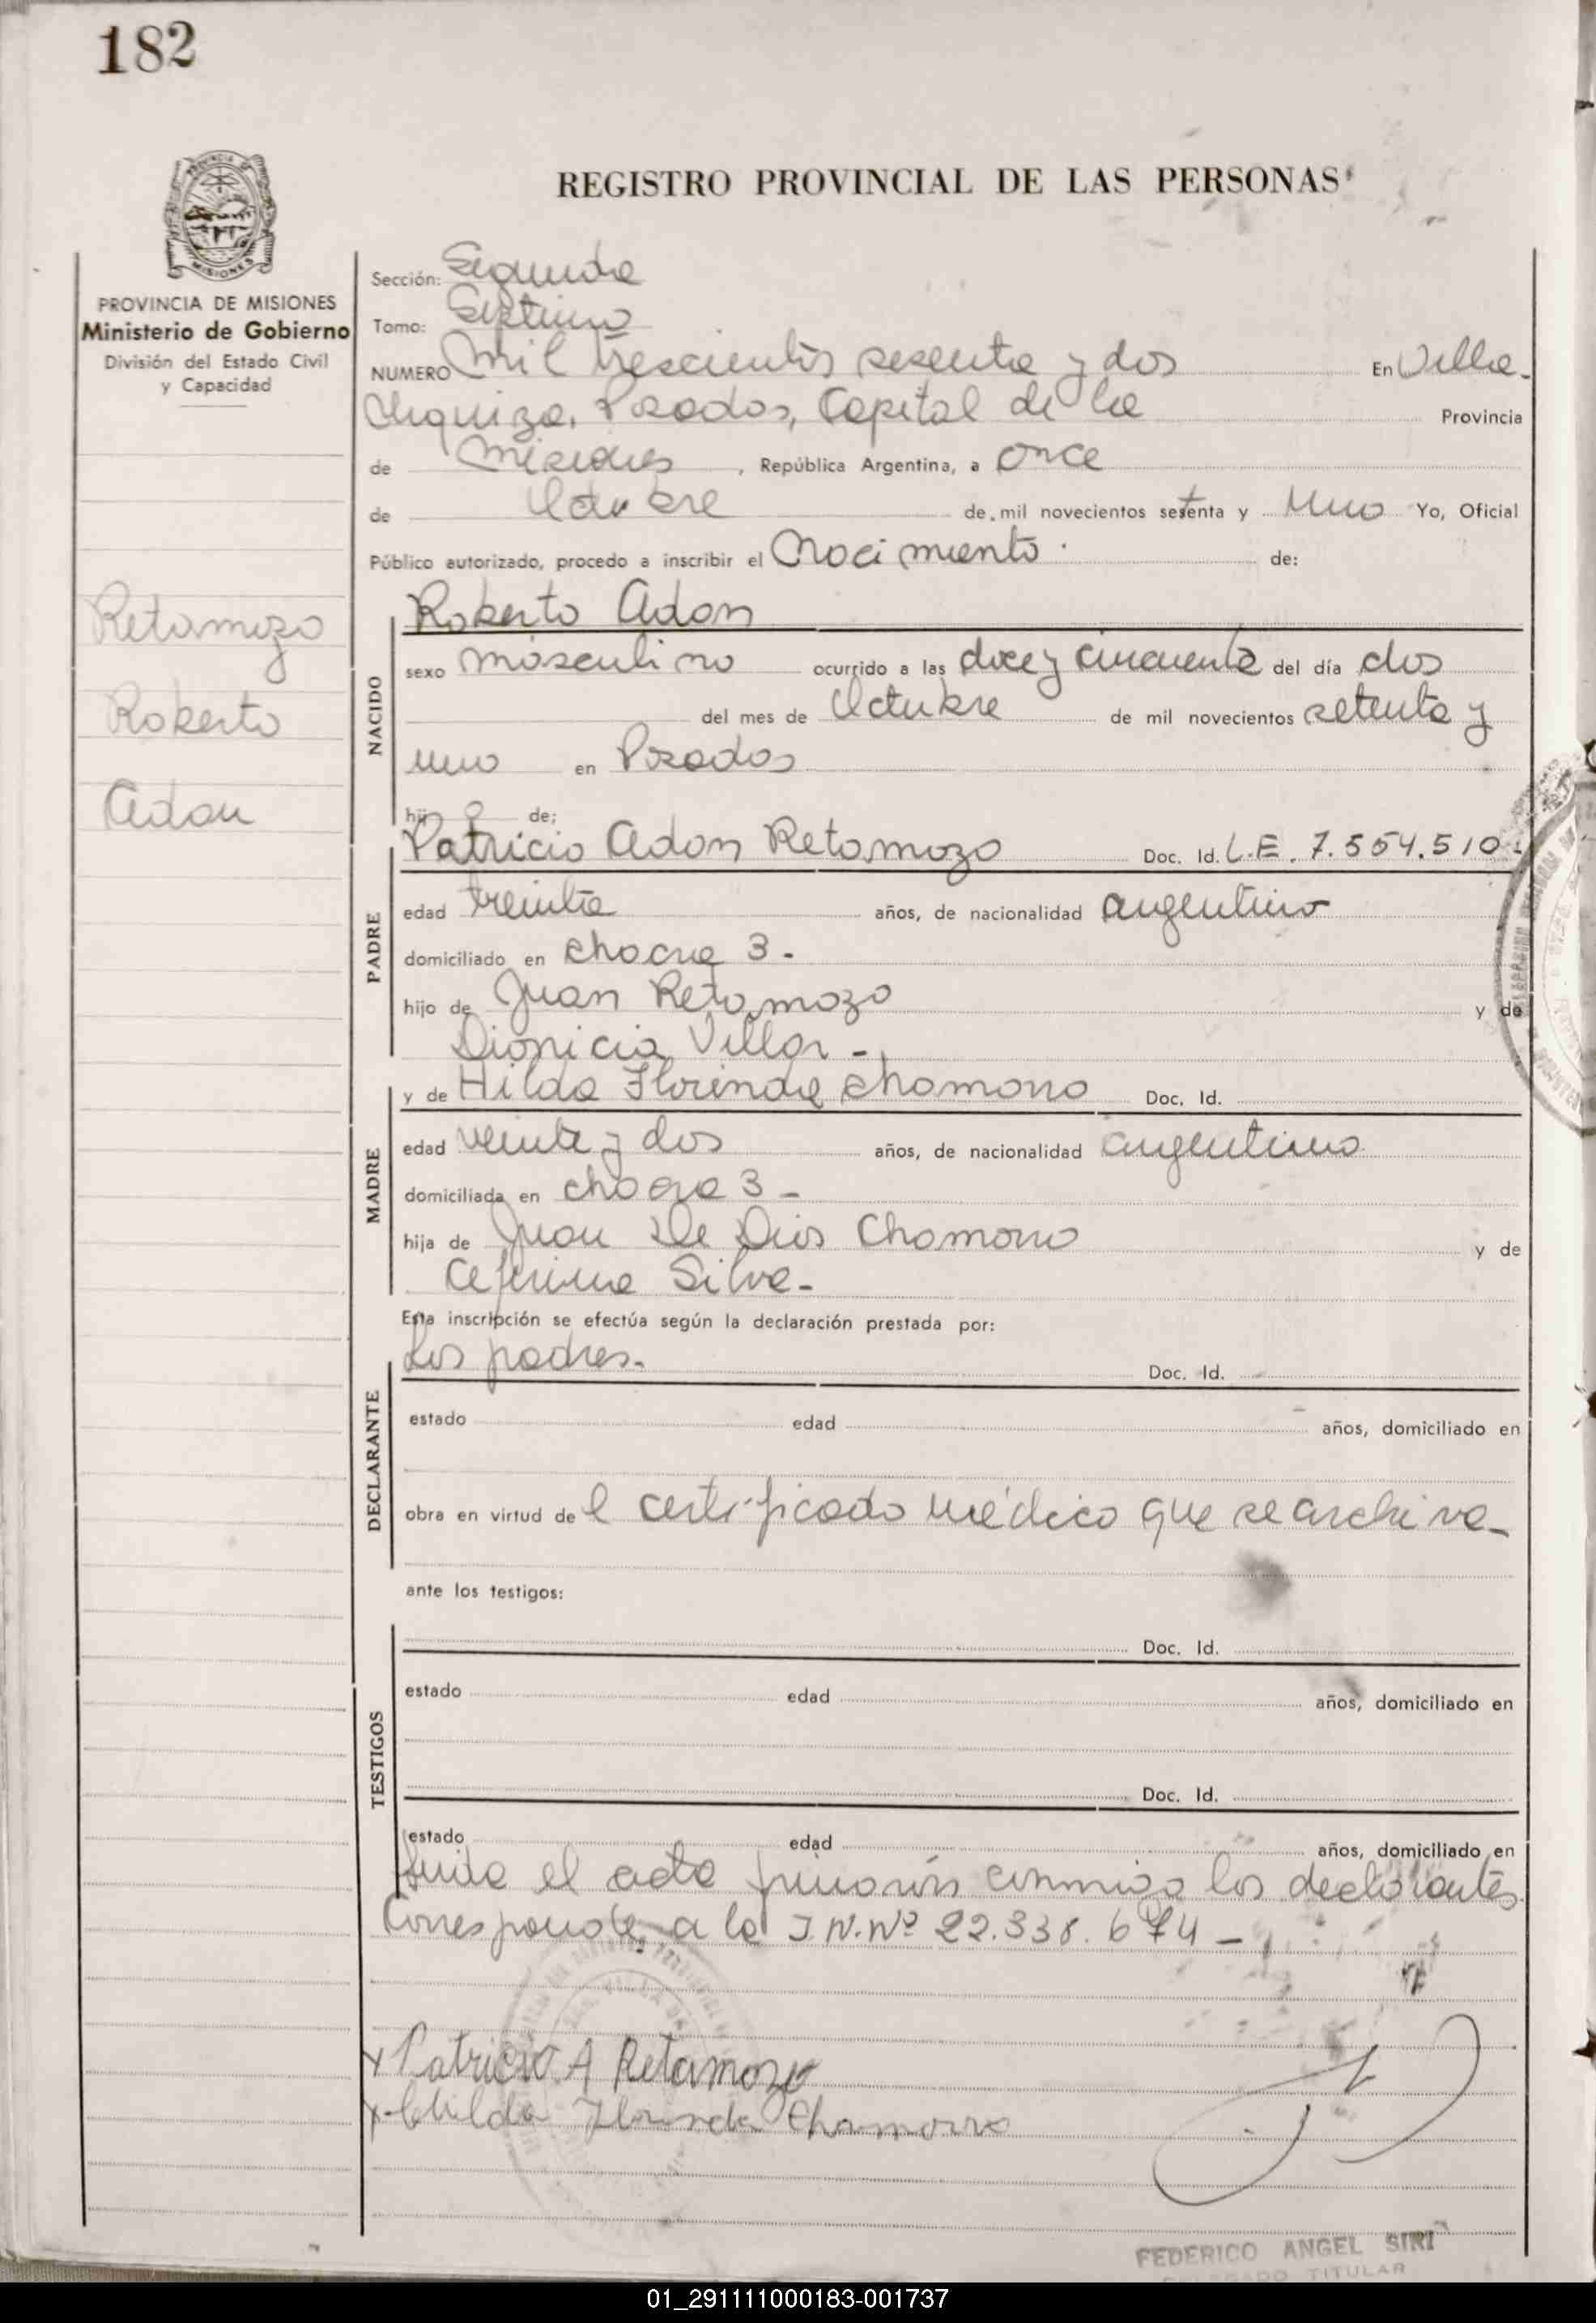 182
PROVINCIA DE MISIONES
Ministerio de Gobierno
División del Estado Civil
y Capacidad
Retamozo
Roberto
Adan
REGISTRO PROVINCIAL DE LAS PERSONAS
Sección: Segunda
Tomo: Septimo
NUMERO Mil trescientos sesenta y dos En Villa
Urquiza, Posadas, Capital de la Provincia
de Misiones, República Argentina, a once
de Octubre de mil novecientos setenta y Uno Yo, Oficial
Público autorizado, procedo a inscribir el Nacimiento de:
NACIDO
Roberto Adan
sexo masculino ocurrido a las doce y cincuenta del día dos
del mes de Octubre de mil novecientos setenta y
uno en Posadas
hijo de:
PADRE
Patricio Adan Retamozo Doc. Id. L.E. 7.554.510.-
edad treinta años, de nacionalidad argentino
domiciliado en chacra 3.-
hijo de Juan Retamozo y de
Dionicia Villar.-
MADRE
y de Hilda Florinda Chamorro Doc. Id.
edad veinte y dos años, de nacionalidad argentina
domiciliada en chacra 3-
hija de Juan De Dios Chamorro y de
Ceferina Silva-
Esta inscripción se efectúa según la declaración prestada por:
DECLARANTE
Los padres- Doc. Id.
estado edad años, domiciliado en
obra en virtud del certificado médico que se archiva-
ante los testigos:
TESTIGOS
Doc. Id.
estado edad años, domiciliado en
Doc. Id.
estado edad años, domiciliado en
el acta conmigo los declarantes.
Corresponde a la I.N.Nº 22.338.674-
x Patricio A Retamozo
x Hilda Florinda Chamorro
FEDERICO ANGEL SIRI
DELEGADO TITULAR
01_291111000183-001737